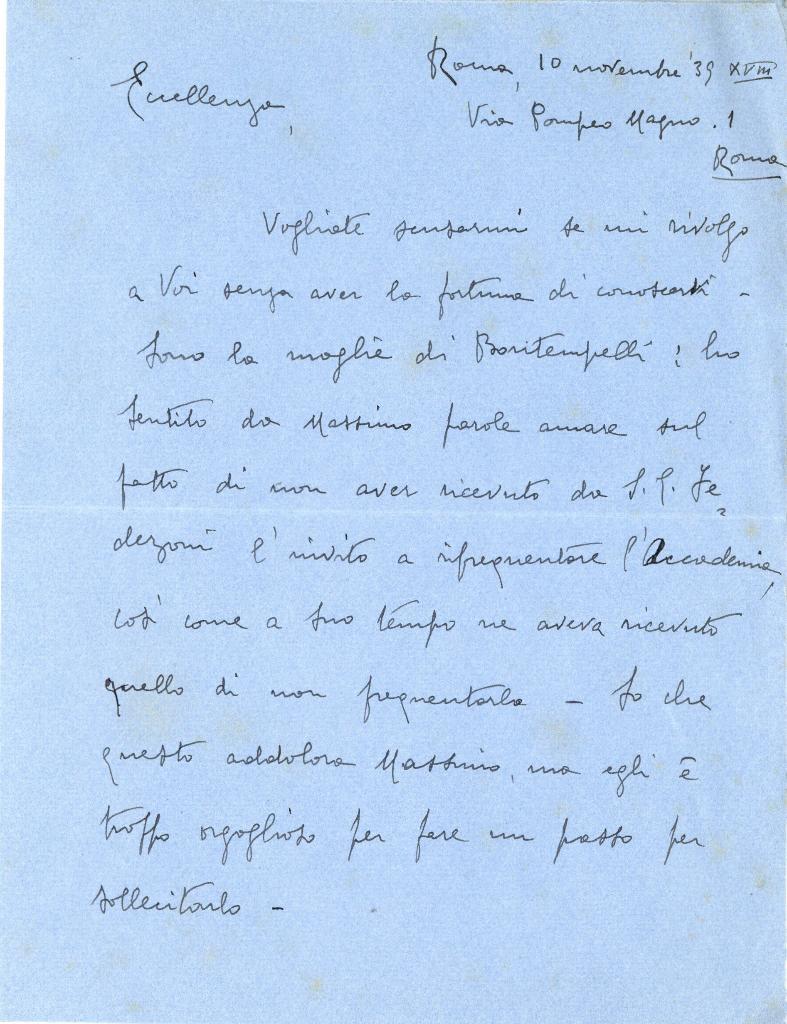 Roma, 10 novembre '39 XVIII
Eccellenza,
Via Pompeo Magno. 1
Roma
Vogliate scusarmi se mi rivolgo
a Voi senza aver la fortuna di conoscervi -
Sono la moglie di Bontempelli: ho
sentito da Massimo parole amare sul
fatto di non aver ricevuto da S. E. Fe=
derzoni l'invito a rifrequentare l'Accademia,
così come a suo tempo ne aveva ricevuto
quello di non frequentarla - So che
questo addolora Massimo, ma egli è
troppo orgoglioso per fare un passo per
sollecitarlo -